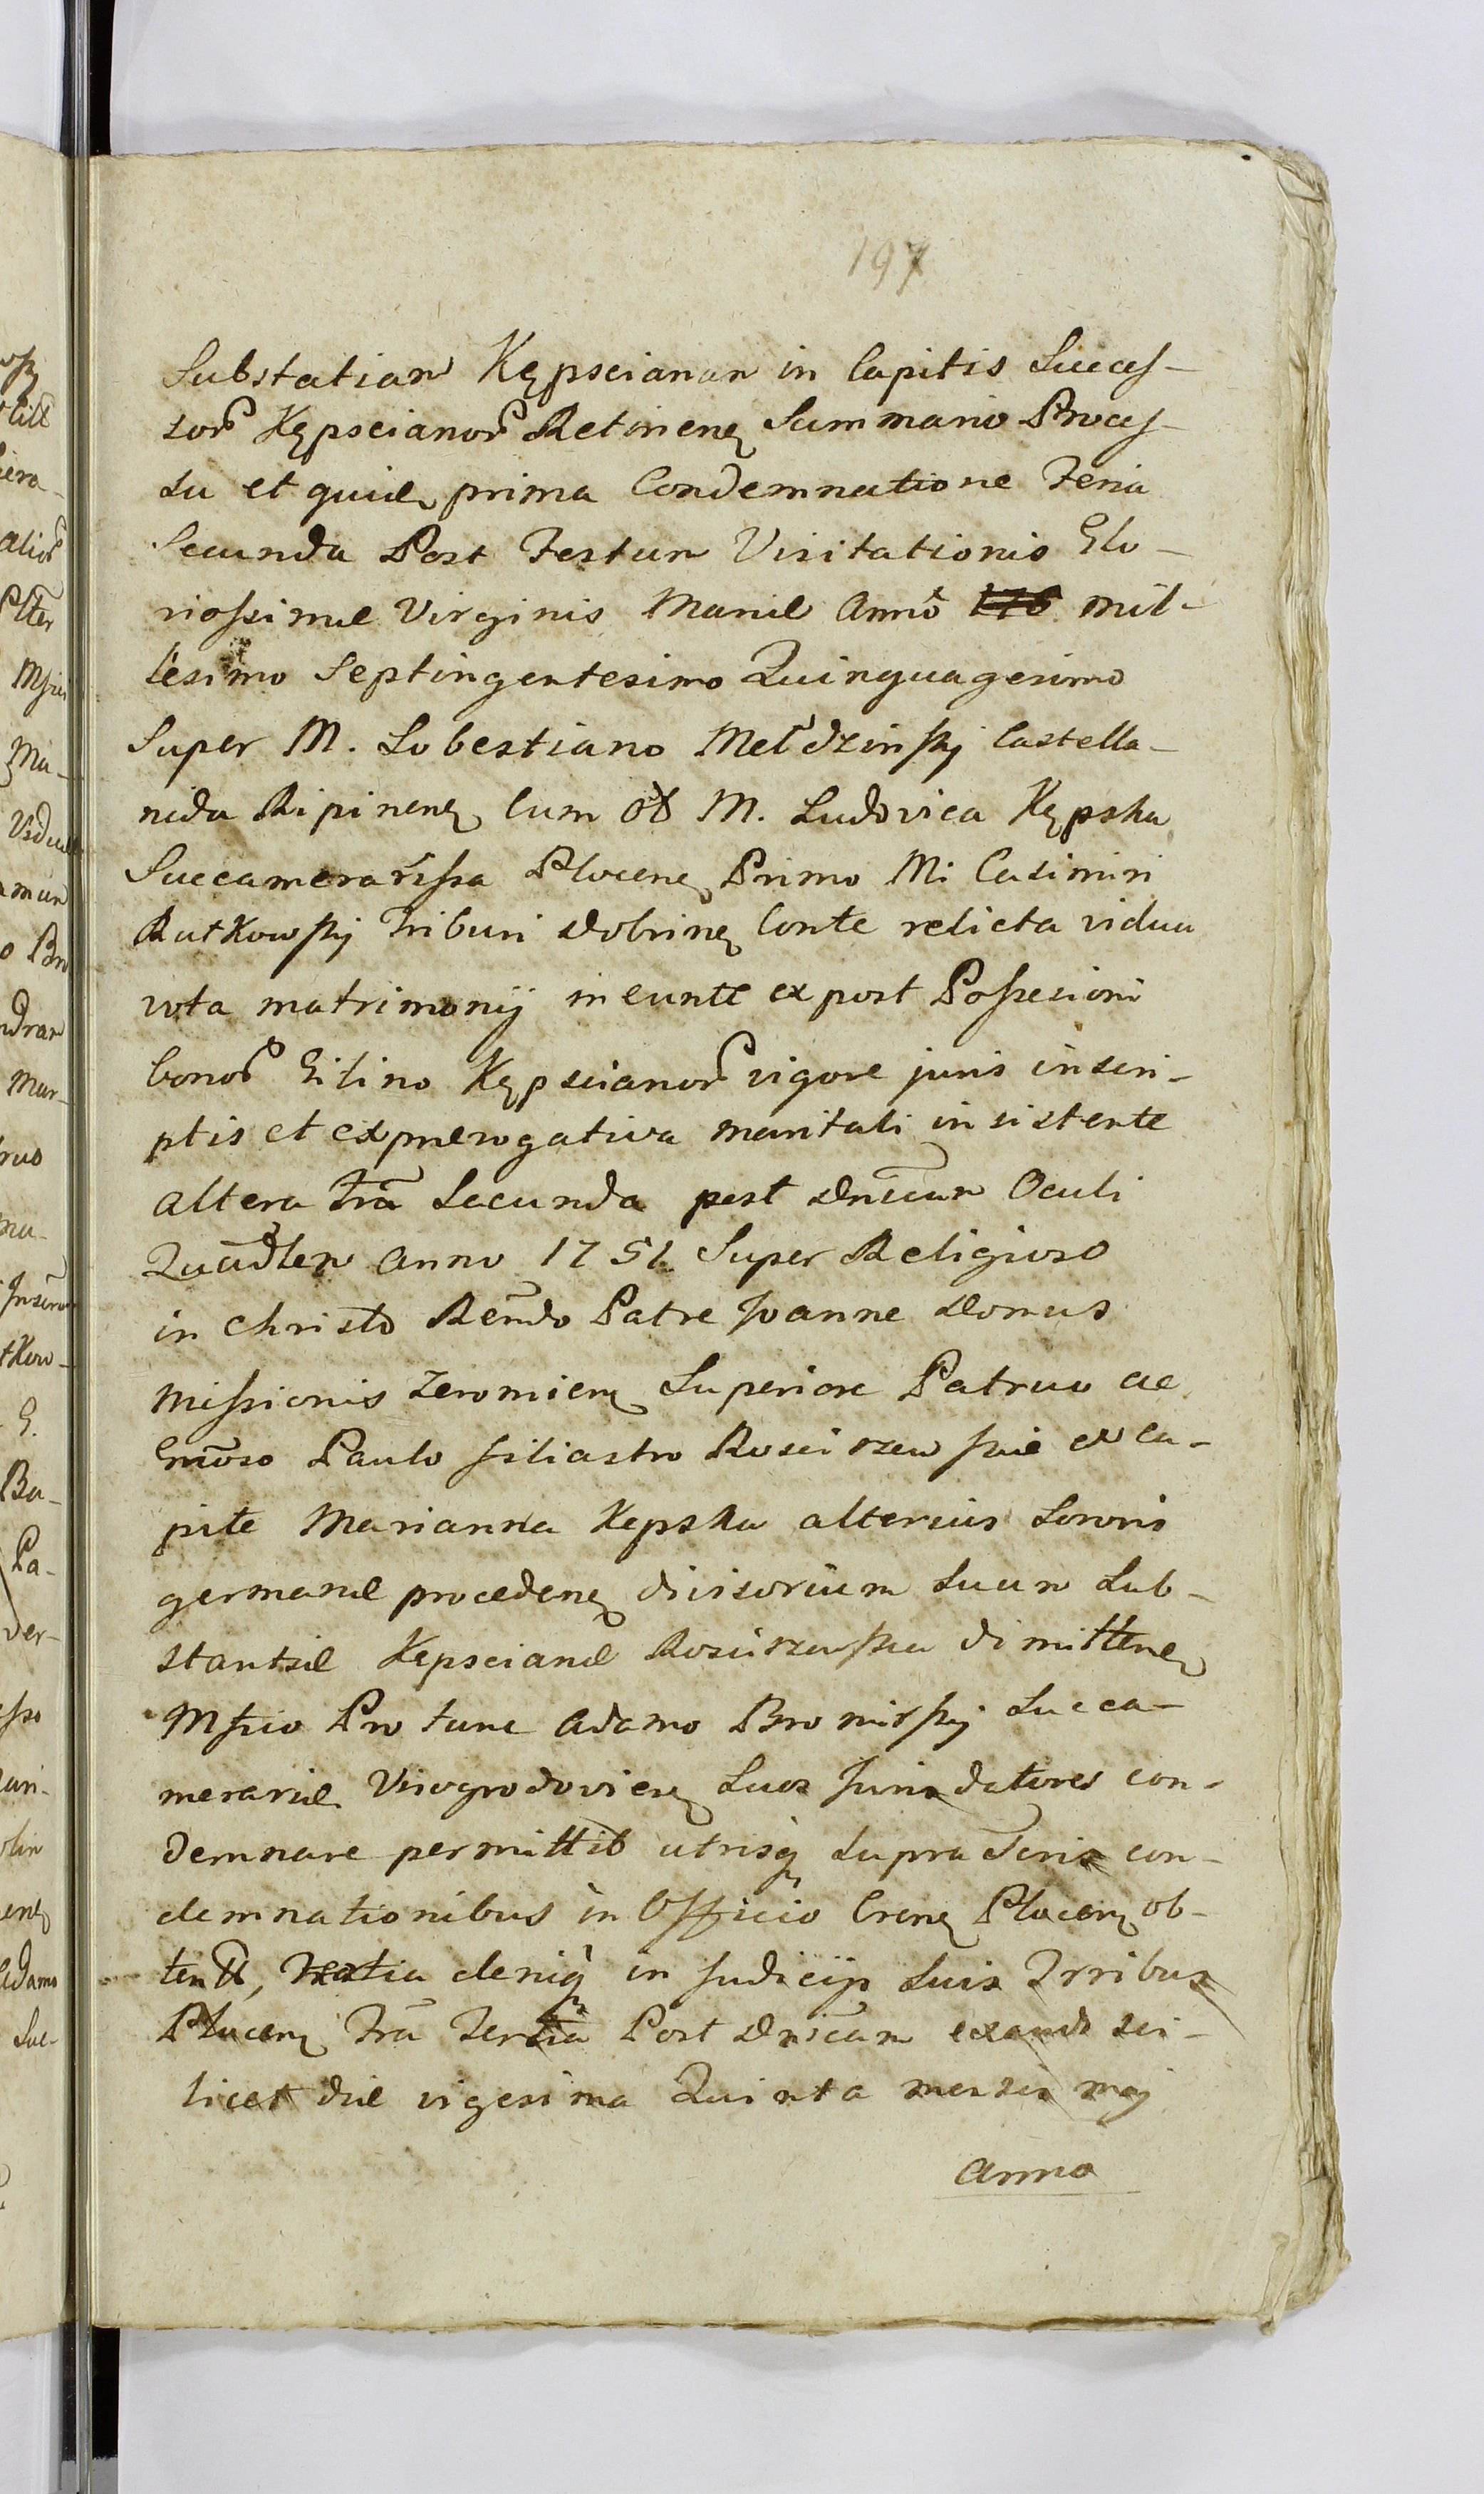 197
Substatian Kępscianan in Capitis Succeſ-
sor Kępscianor Retinenę Summario Proceſ-
su et quide prima Condemnatione Feria
Secunda Post Festum Visitationis Glo-
rioſsimæ Virginis Mariæ Anno mil-
lesimo Septingentesimo Quinquagesimo
Super M. Sobestiano Mełdzinſkj Castella-
nida Ripinenę Cum M. Ludovica Kępska
Succamerariſsa Plocenę Primo Mi Casimiri
Rutkowſkj Tribuni Dobrinę Conte relicta vidua
vota matrimonij ineunte ex post Poſsesioni
bonor Gilino Kępscianor vigore juris inscri-
ptis et ex prærogativa maritali insistente
altera fra Secunda post Dnicam Oculi
Quadlen Anno 1751. Super Religioso
in Christo Rendo Patre Joanne Domus
Miſsionis Zeromienę Superiore Patruo ac
Gnoso Paulo filiastro Rosciszewſkie ex ca-
pite Marianna Kępska alterius Sororis
germanæ procedenę divisorium suum Sub-
stantiæ Kępscianæ Rosciszewſka dimittenę
Mfico Pro tunc Adamo Bromirſkj Succa-
merariæ Visogrodovienę Suos Jurisdatores con-
demnare permittit utrisq supra Seris con-
demnationibus in Officio Crenę Plocenę ob-
tent, tertia deniq in Judicijs suis Trribus
Plocenę fra Tertia Post Dnicam exaudi sci-
licet die vigesima Quinta mensis maj
Anno